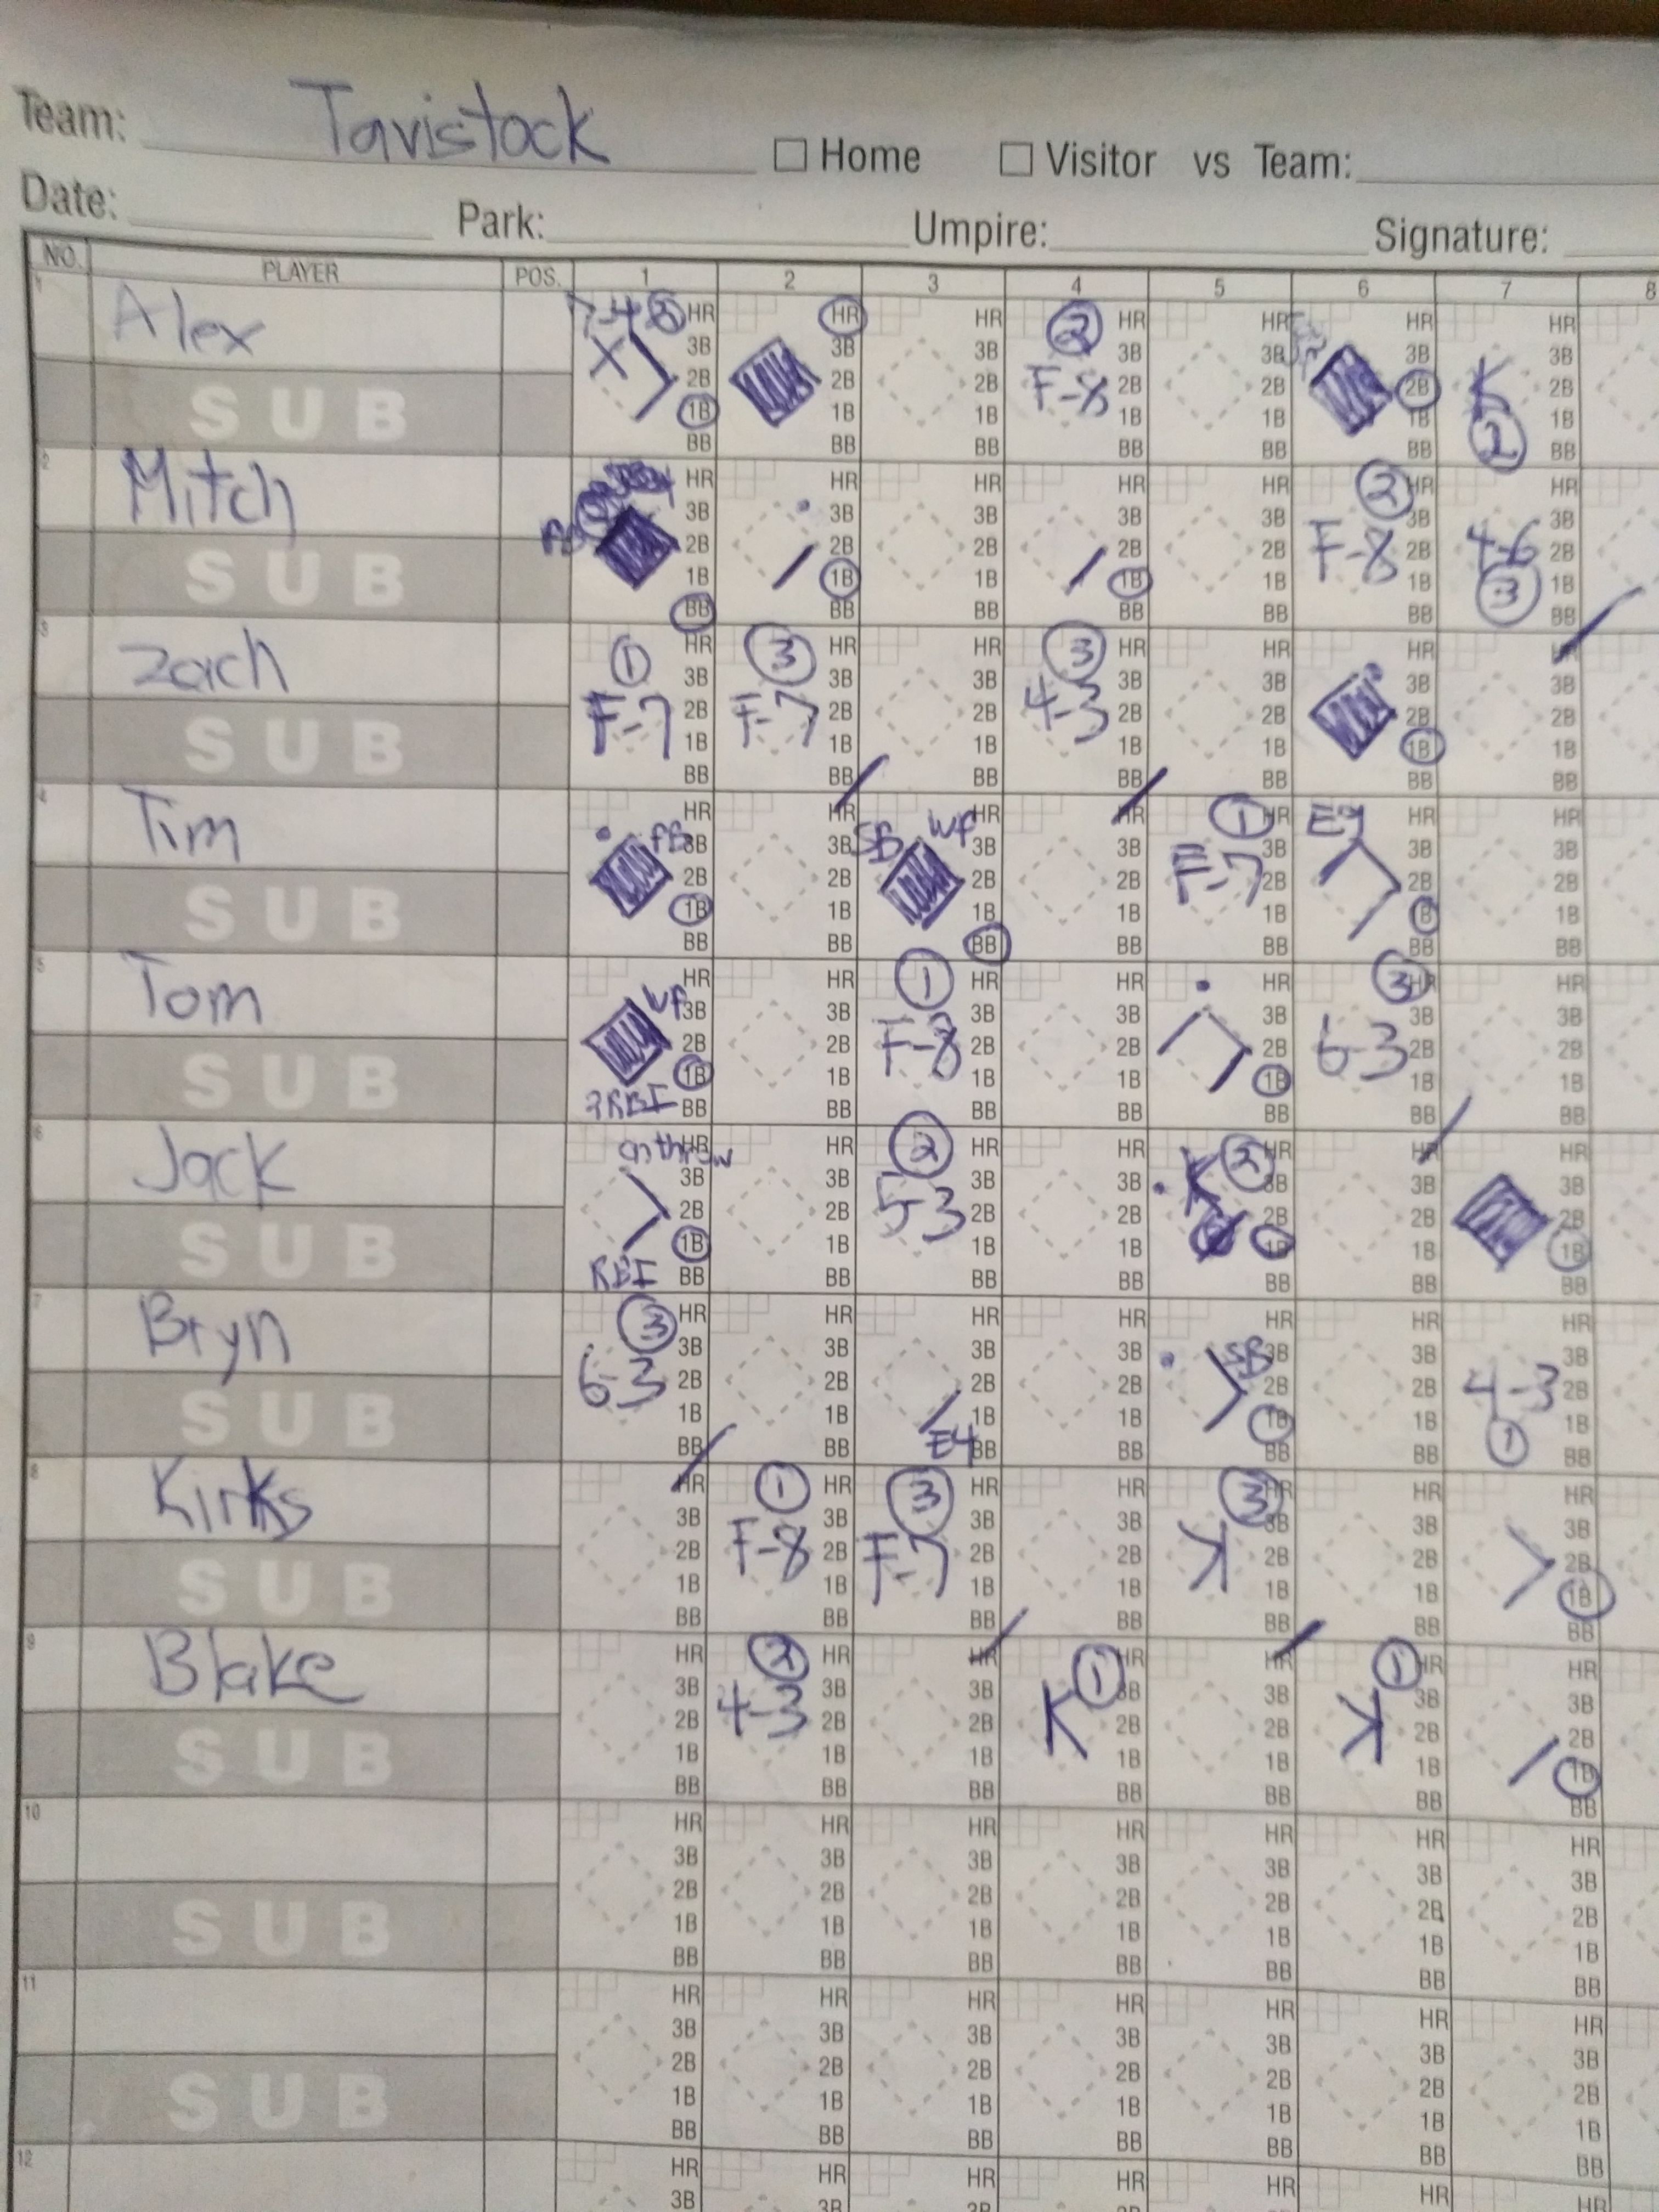 Team: Tavistock Home Visitor vs Team:
Date: Park: Umpire: Signature:
NO. PLAYER POS. 1 2 3 4 5 6 7 8
1 Alex HR HR HR 2 HR HR HR HR
3B 3B 3B 3B 3B 3B 3B
2B 2B 2B F-8 2B 2B 2B K 2B
SUB 1B 1B 1B 1B 1B 1B 1B
BB BB BB BB BB BB 2 BB
2 Mitch HR HR HR HR HR 2 HR HR
3B 3B 3B 3B 3B 3B 3B
2B 2B 2B 2B 2B F-8 2B 4-6 2B
SUB 1B 1B 1B 1B 1B 1B 3 1B
BB BB BB BB BB BB BB
3 Zach 1 HR 3 HR HR 3 HR HR HR HR
3B 3B 3B 3B 3B 3B 3B
F-7 2B F-7 2B 2B 4-3 2B 2B 2B 2B
SUB 1B 1B 1B 1B 1B 1B 1B
BB BB BB BB BB BB BB
4 Tim HR HR WP HR HR 1 HR E9 HR HR
PB 3B 3B SB 3B 3B 3B 3B 3B
2B 2B 2B 2B F-7 2B 2B 2B
SUB 1B 1B 1B 1B 1B 1B 1B
BB BB BB BB BB BB BB
5 Tom HR HR 1 HR HR HR 3 HR HR
WP 3B 3B 3B 3B 3B 3B 3B
2B 2B F-8 2B 2B 2B 6-3 2B 2B
SUB 1B 1B 1B 1B 1B 1B 1B
RBI BB BB BB BB BB BB BB
6 Jack on throw HR HR 2 HR HR 2 HR HR HR
3B 3B 3B 3B K 3B 3B 3B
2B 2B 5-3 2B 2B 2B 2B 2B
SUB 1B 1B 1B 1B 1B 1B 1B
RBI BB BB BB BB BB BB BB
7 Bryn 3 HR HR HR HR HR HR HR
3B 3B 3B 3B SB 3B 3B 3B
6-3 2B 2B 2B 2B 2B 2B 4-3 2B
SUB 1B 1B 1B 1B 1B 1B 1B
BB BB E4 BB BB BB BB 1 BB
8 Kirks HR 1 HR 3 HR HR 3 HR HR HR
3B 3B 3B 3B 3B 3B 3B
2B F-8 2B F-7 2B 2B K 2B 2B 2B
SUB 1B 1B 1B 1B 1B 1B 1B
BB BB BB BB BB BB BB
9 Blake HR 2 HR HR 1 HR HR 1 HR HR
3B 3B 3B 3B 3B 3B 3B
2B 4-3 2B 2B K 2B 2B K 2B 2B
SUB 1B 1B 1B 1B 1B 1B 1B
BB BB BB BB BB BB BB
10 HR HR HR HR HR HR HR
3B 3B 3B 3B 3B 3B 3B
2B 2B 2B 2B 2B 2B 2B
SUB 1B 1B 1B 1B 1B 1B 1B
BB BB BB BB BB BB BB
11 HR HR HR HR HR HR HR
3B 3B 3B 3B 3B 3B 3B
2B 2B 2B 2B 2B 2B 2B
SUB 1B 1B 1B 1B 1B 1B 1B
BB BB BB BB BB BB BB
12 HR HR HR HR HR HR HR
3B 3B 3B